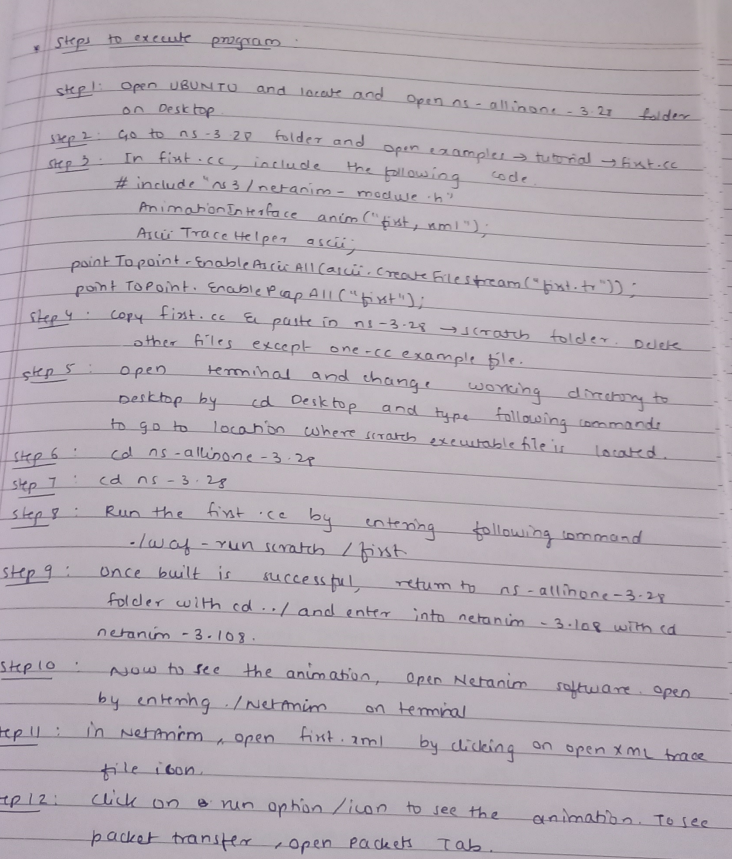 * Steps to execute program.
Step 1: Open UBUNTU and locate and open ns-allinone-3.28 folder
on Desktop
Step 2: Go to ns-3.28 folder and open examples → tutorial → first.cc
Step 3: In first.cc, include the following code.
# include "ns3/netanim-module.h"
AnimationInterface anim("first,xml");
Ascii TraceHelper ascii;
point Topoint.EnableAscii All (ascii.CreateFilestream("first.tr"));
point TOPoint.EnablePcap All ("first");
Step 4: copy first.cc & paste in ns-3.28 → scratch folder. Delete
other files except one-cc example file.
Step 5: open terminal and change working directory to
Desktop by cd Desktop and type following commands
to go to location where scratch executable file is located.
Step 6: cd ns-allinone-3.28
Step 7: cd ns-3.28
Step 8: Run the first.cc by entering following command
./waf -run scratch/first
Step 9: once built is successful, return to ns-allinone-3.28
folder with cd ../ and enter into netanim-3.108 with cd
netanim-3.108.
Step 10: Now to see the animation, open Netanim software. open
by entering ./NetAnim on terminal
tep 11: in NetAnim, open first.xml by clicking on open XML trace
file icon.
ep 12: click on run option/icon to see the animation. To see
packet transfer, open packets Tab.